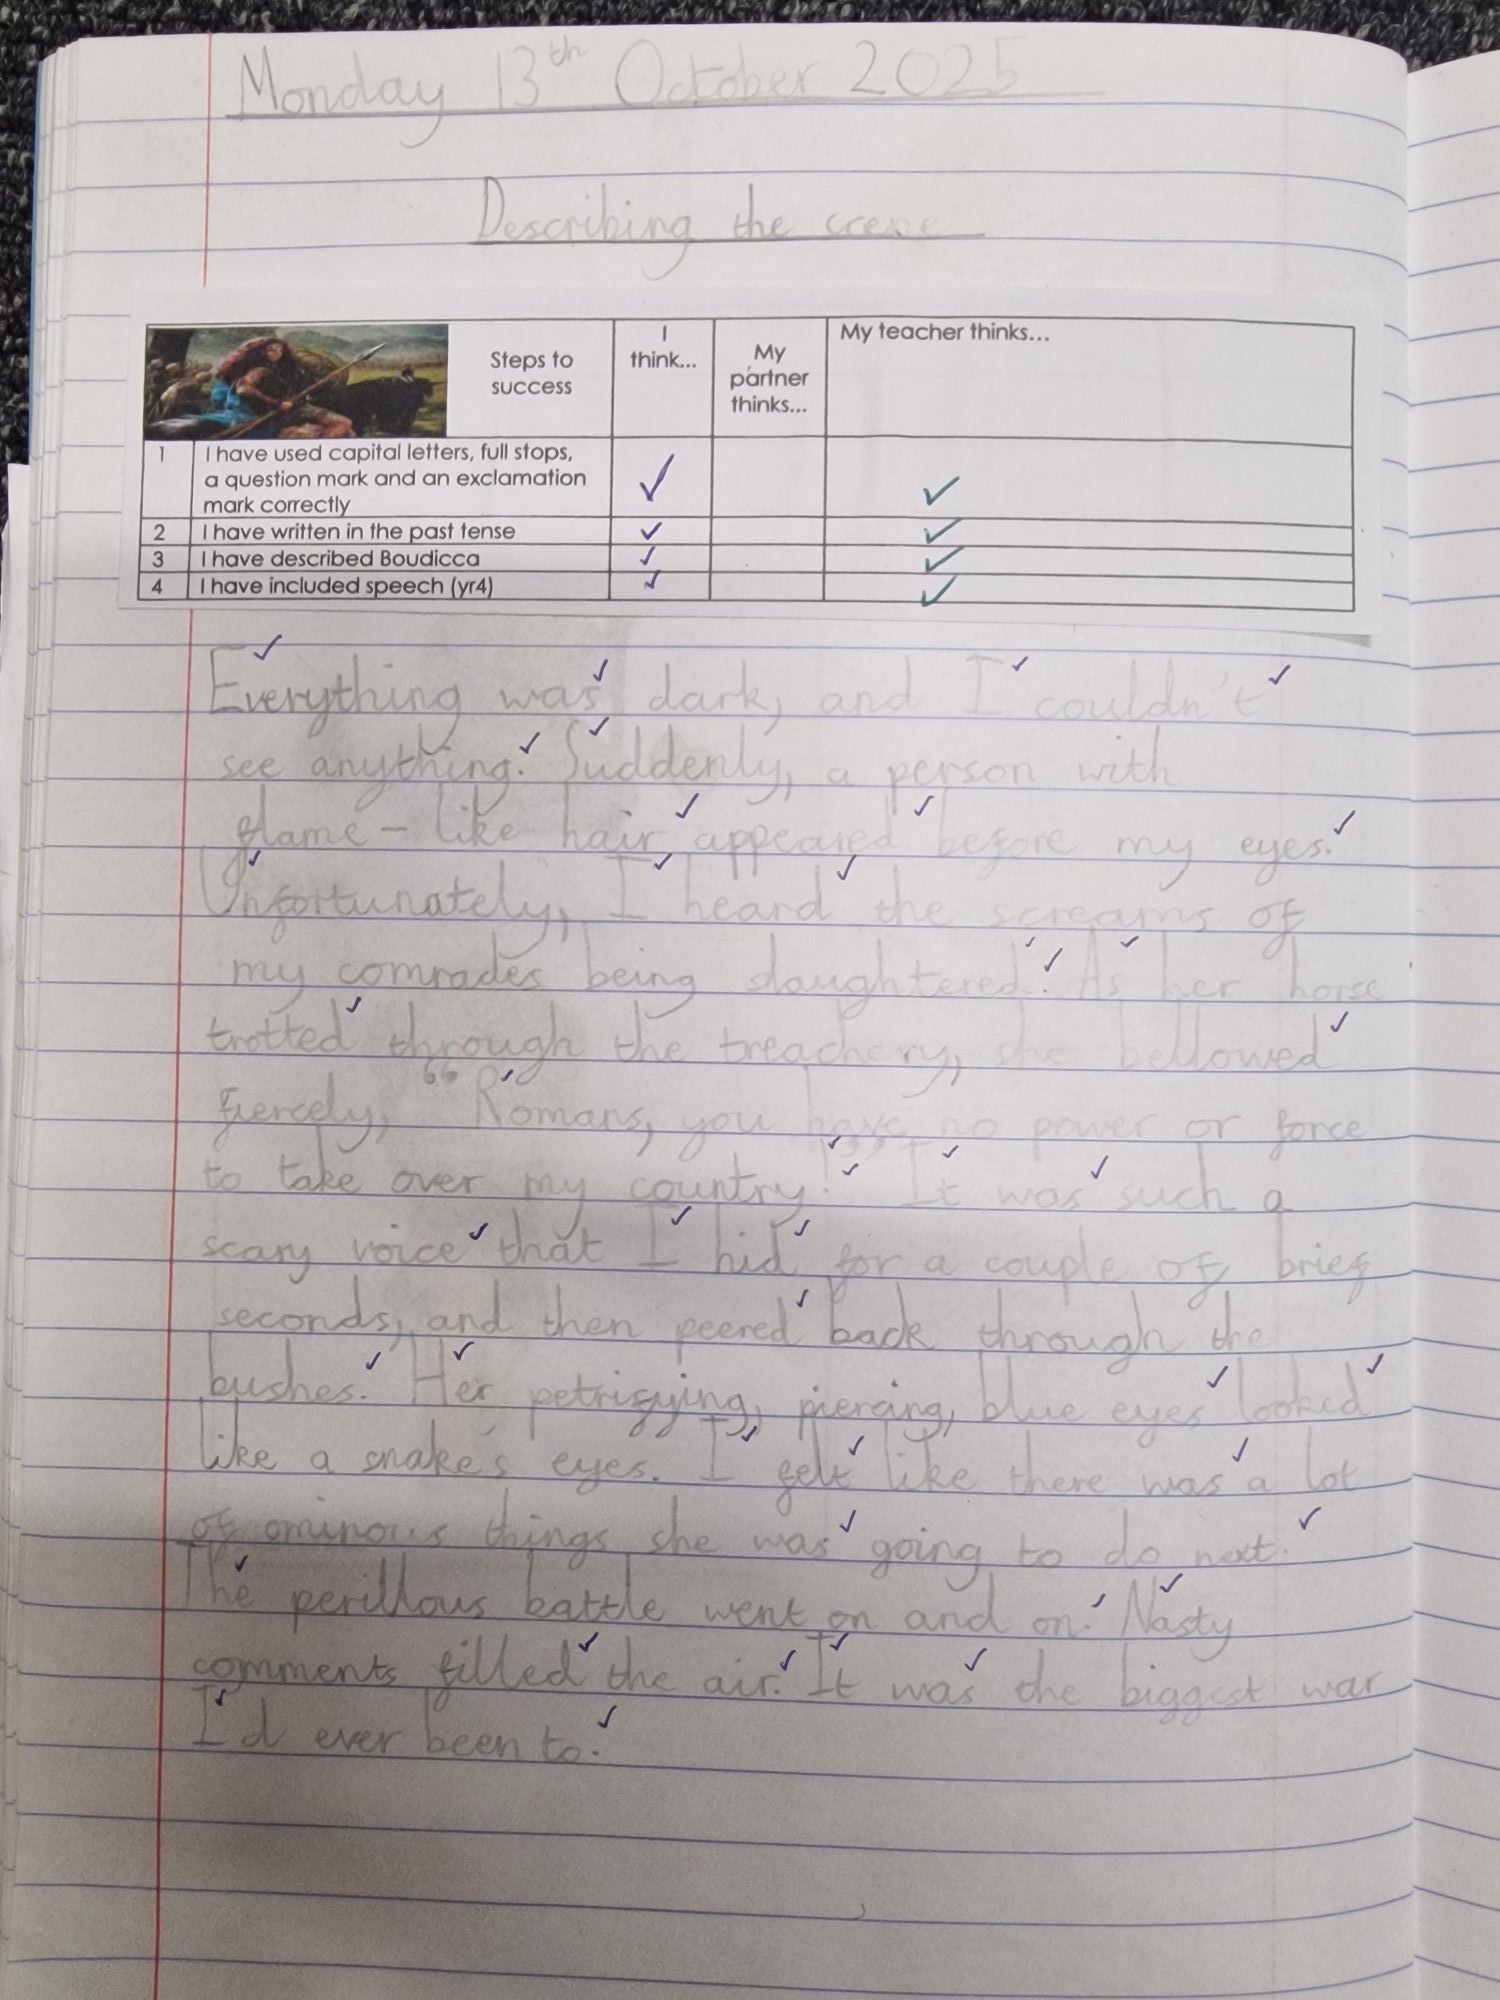 Monday 13th October 2025
Describing the scene
Steps to success
I think...
My partner thinks...
My teacher thinks...
1 I have used capital letters, full stops, a question mark and an exclamation mark correctly ✓ ✓
2 I have written in the past tense ✓ ✓
3 I have described Boudicca ✓ ✓
4 I have included speech (yr4) ✓ ✓
Everything was dark, and I couldn't
see anything. Suddenly, a person with
flame-like hair appeared before my eyes.
Unfortunately, I heard the screams of
my comrades being slaughtered! As her horse
trotted through the treachery, she bellowed
fiercely, "Romans, you have no power or force
to take over my country!" It was such a
scary voice that I hid for a couple of brief
seconds, and then peered back through the
bushes. Her petrifying, piercing, blue eyes looked
like a snake's eyes. I felt like there was a lot
of ominous things she was going to do next.
The perillous battle went on and on. Nasty
comments filled the air. It was the biggest war
I'd ever been to.